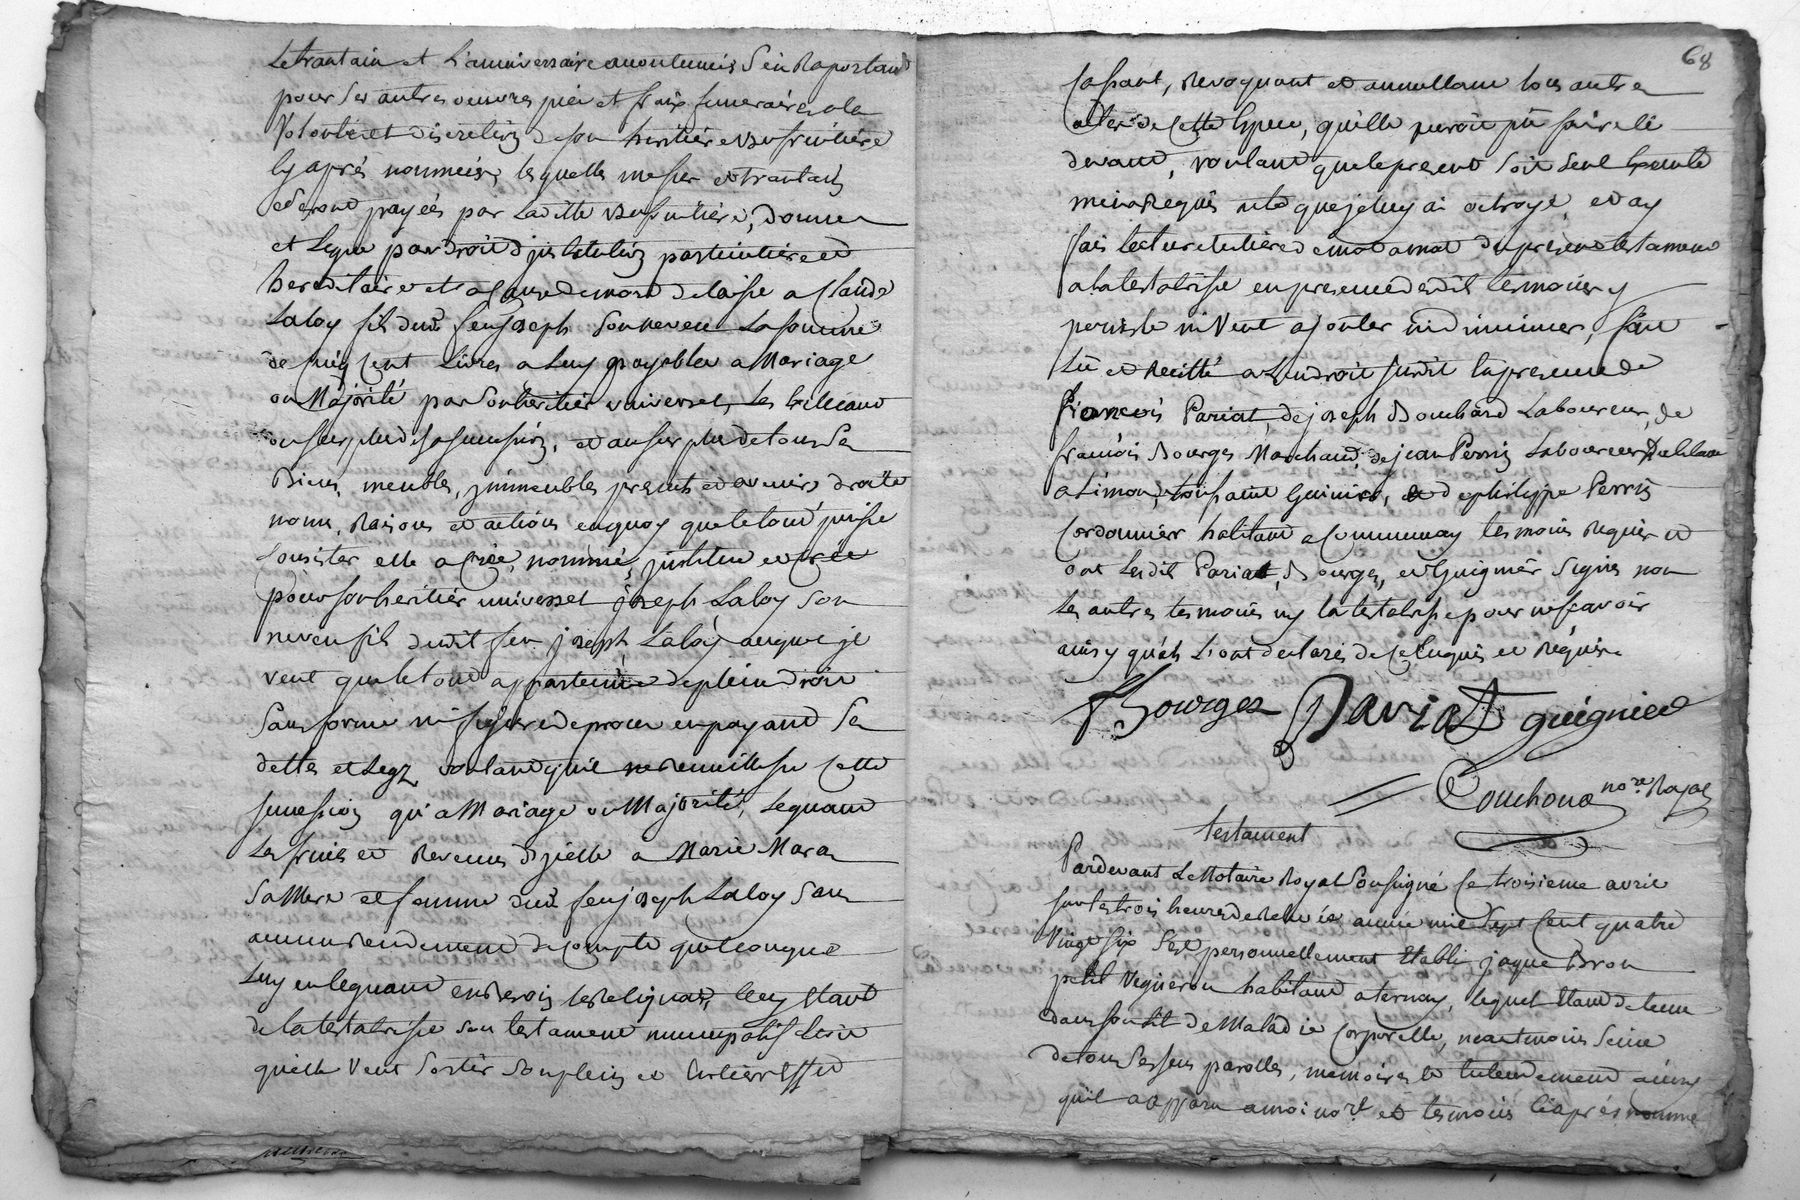 Le trantain et L'anniversaire accoutumés S'en Raportant
pour Ses autres oeuvres pies et fraix funeraires a la
Volonté et discretion de son heritiere usufruitiere
Cy aprés nommées, lesquelles messes et trantain
Seront payées par Laditte usufruitiere, donne
et Legue par droit d'institution particuliere et
hereditaire et a Cause de mort delaisse a Claude
Laloy fils dud feu joseph Son neveu La somme
de Cent Livres a Luy payable a Mariage
ou Majorité par Son heritier universel,
et au Surplus de tous Ses
Biens, meubles, immeubles presents et avenir, droits
noms, Raisons et actions en quoy que le tout puisse
Consister elle a Créé, nommé, institué et Créé
pour son heritier universel joseph Laloy Son
neveu fils dudit feu joseph Laloy auquel
veut que le tout appartienne de plein droit
Sans forme ni figure de procès en payant Ses
dettes et Legz, voulant qu'il ne recueillisse Cette
Succession qu'a Mariage ou Majorité, Leguant
Les fruits et Revenus d'jcelle a Marie Mara
Sa Mere et femme dud feu joseph Laloy Sans
aucun Rendement de Compte quelconque
Luy en leguant les Reliquas, Cecy Etant
de la testatrisse Son testament nuncupatif Écrit
quelle veut Sortir Son plein et Entier Effet
68
Cassant, Revoquant et annullant tous autres
actes de Cette Espece, quelle pouroit faire Ci
devant, voulant que le present Soit Seul Execute
m'en a Requis acte que je luy ai octroyé, et ay
fait lecture entiere de mot a mot du present testament
a la testatrisse en presence desdits temoins y
persiste ni veut ajouter ni diminuer, fait
Lû et Recitté a L'endroit Susdit En presence de
François Pariat, de joseph Bouchard Laboureur, de
françois Bourges Marchand, de jean Perrin Laboureur habitant
a Simon, et de philippe Perrin
Cordonnier habitant a Communay temoins Requis et
ont Lesdits Pariat, Bourges, et Guignier Signés non
Les autres temoins ny la testatrisse pour ne sçavoir
ainsy qu'ils L'ont declarés de Ce Enquis et Réquis.
Bourges Pariat guignier
Couchoud no.re Royal
testament
Pardevant Le Notaire Royal Soussigné Ce troisieme avril
sur les trois heures de Relevée année mil Sept Cent quatre
Vingt Six S'est personnellement Etabli jaque Bron
petit Vigneron habitant a ternay, lequel Etant detenu
dans Son lit de Maladie Corporelle, neantmoins Seine
de tous Ses Sens parolles, mémoires et Entendement ainsy
qu'il a apparu a moi no.re et temoins Ciaprés nommé